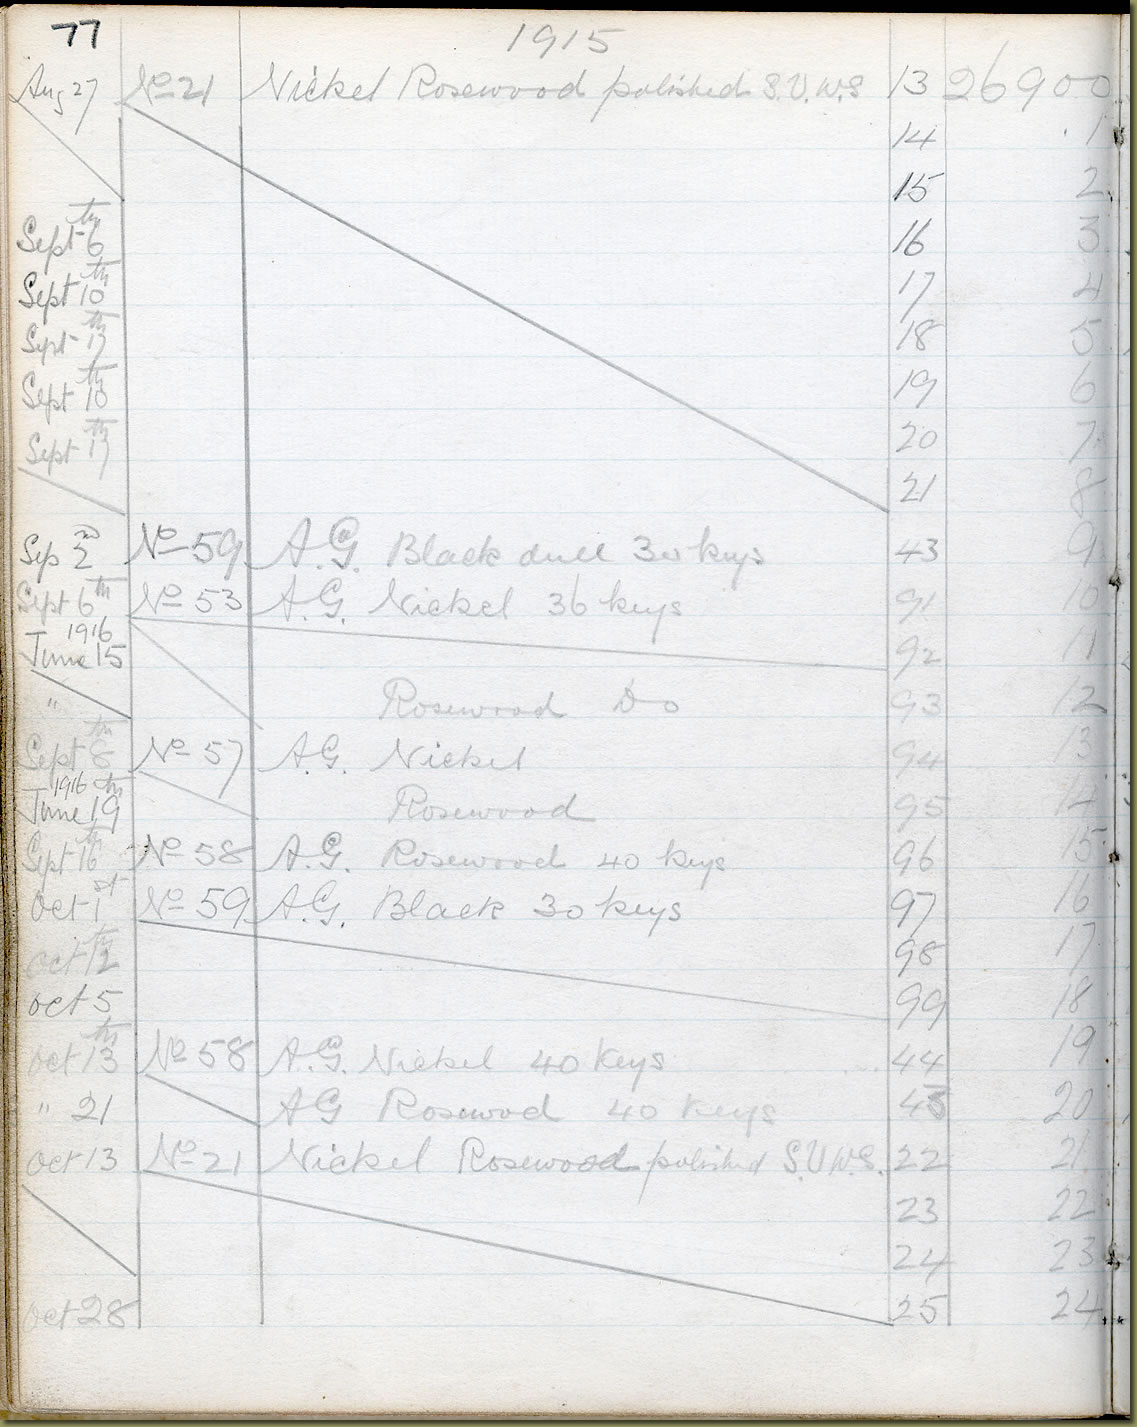 77 1915
Aug 27 No 21 Nickel Rosewood polished S.V.W.S 13 26900
14 1
15 2
Sept 6th 16 3
Sept 10th 17 4
Sept 13th 18 5
Sept 10th 19 6
Sept 17th 20 7
21 8
Sep 2nd No 59 A.G. Black dull 30 keys 43 9
Sept 6th No 53 A.G. Nickel 36 keys 91 10
1916
June 15 92 11
" Rosewood Do 93 12
Sept 8th No 57 A.G. Nickel 94 13
1916
June 19th Rosewood 95 14
Sept 16th No 58 A.G. Rosewood 40 keys 96 15
Oct 1st No 59 A.G. Black 30 keys 97 16
Oct 12th 98 17
Oct 5 99 18
Oct 13th No 58 A.G. Nickel 40 Keys 44 19
" 21 AG Rosewood 40 Keys 45 20
Oct 13 No 21 Nickel Rosewood polished S.V.W.S. 22 21
23 22
24 23
Oct 28 25 24